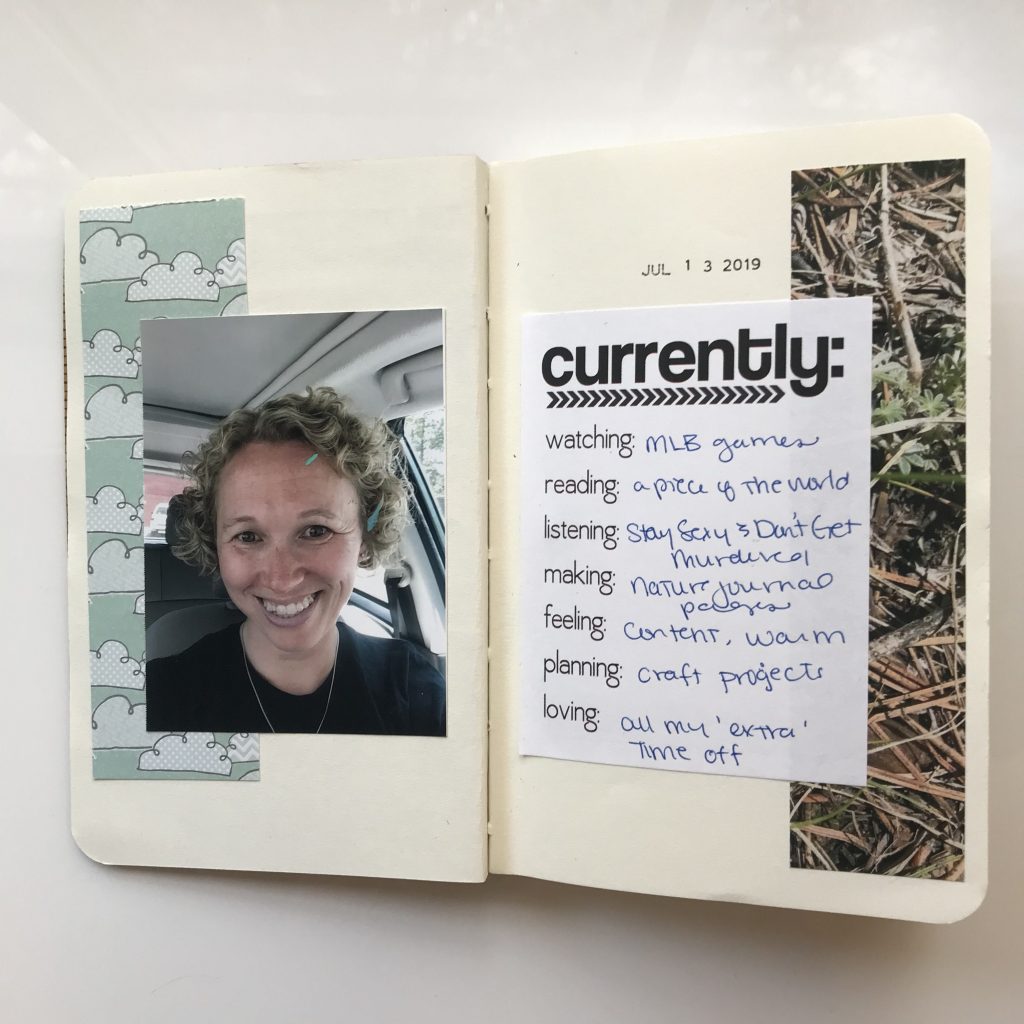 JUL 13 2019
currently:
watching: MLB games
reading: a piece of the world
listening: Stay Sexy & Don't Get
Murdered
making: nature journal
pages
feeling: content, warm
planning: craft projects
loving: all my 'extra'
time off